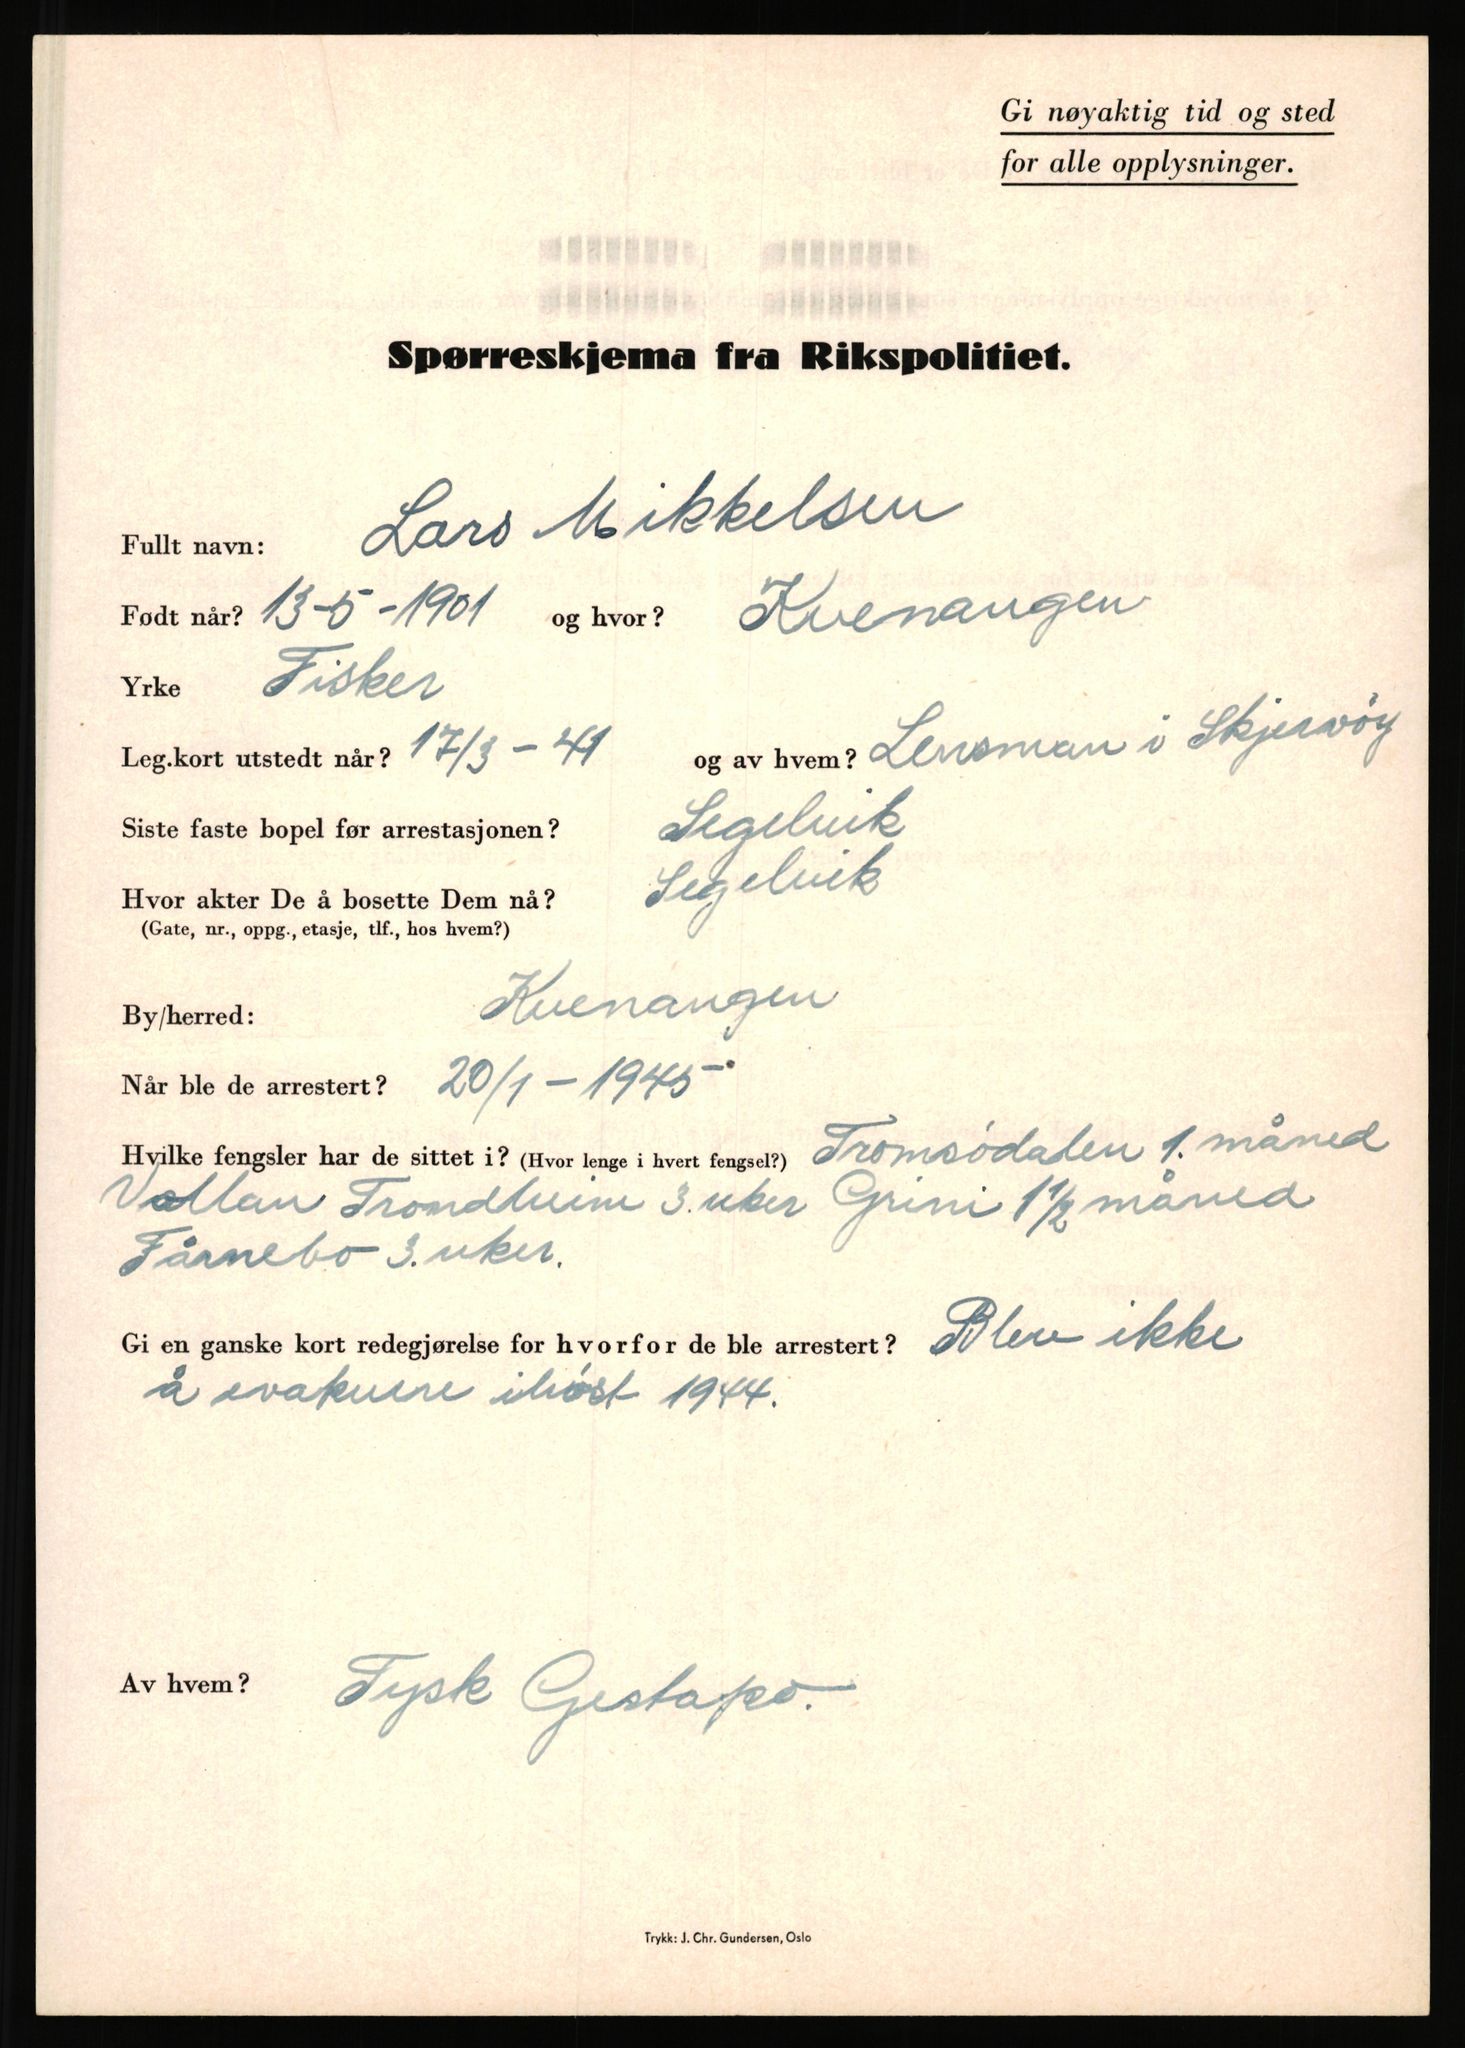 Gi nøyaktig tid og sted
for alle opplysninger.
Spørreskjema fra Rikspolitiet.
Fullt navn: Lars Mikkelsen
Født når? 13-5-1901 og hvor? Kvenangen
Yrke Fisker
Leg.kort utstedt når? 17/3-41 og av hvem? Lensman i Skjervöy
Siste faste bopel før arrestasjonen? Segelvik
Hvor akter De å bosette Dem nå? Segelvik
(Gate, nr., oppg., etasje, tlf., hos hvem?)
By/herred: Kvenangen
Når ble de arrestert? 20/1-1945
Hvilke fengsler har de sittet i? (Hvor lenge i hvert fengsel?) Tromsödalen 1. måned
Vollan Trondheim 3. uker Grini 1 1/2 måned
Fårnebo 3. uker.
Gi en ganske kort redegjørelse for hvorfor de ble arrestert? Blev ikke
å evakuere ihöst 1944.
Av hvem? Tysk Gestapo.
Trykk: J. Chr. Gundersen, Oslo